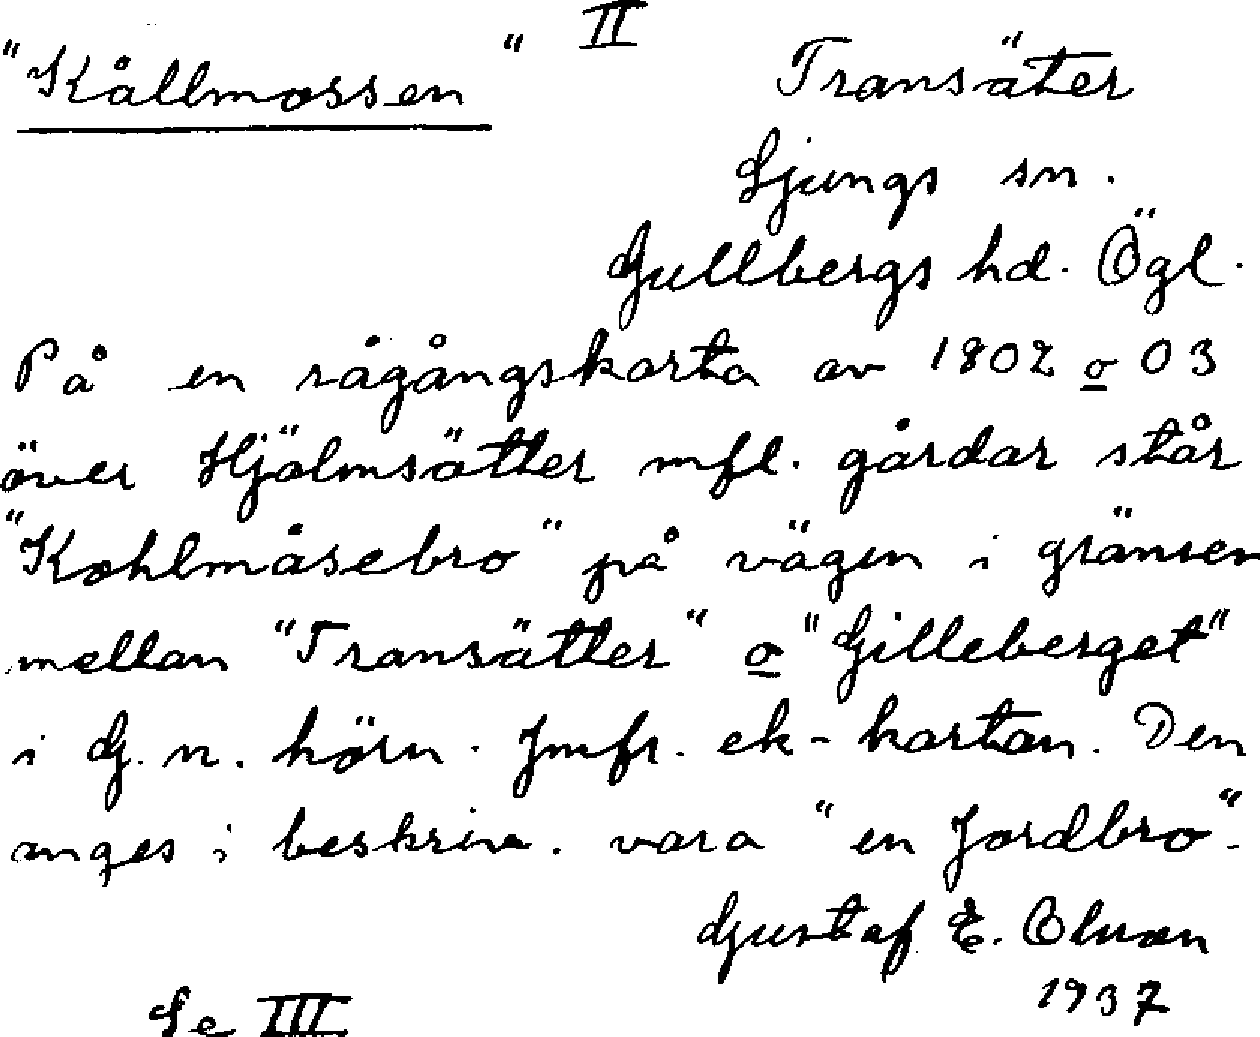 II
"Kållmossen" Transäter
Ljungs sn.
Gullbergs hd. Ögl.
På en rågångskarta av 1802 o 03
över Hjälmsätter mfl. gårdar står
"Kohlmåsebro" på vägen i gränsen
mellan "Transätter" o "Gilleberget"
i G. n. hörn. Jmfr. ek-kartan. Den
anges i beskriv. vara "en Jordbro".
Gustaf E. Olsson
1937
Se III